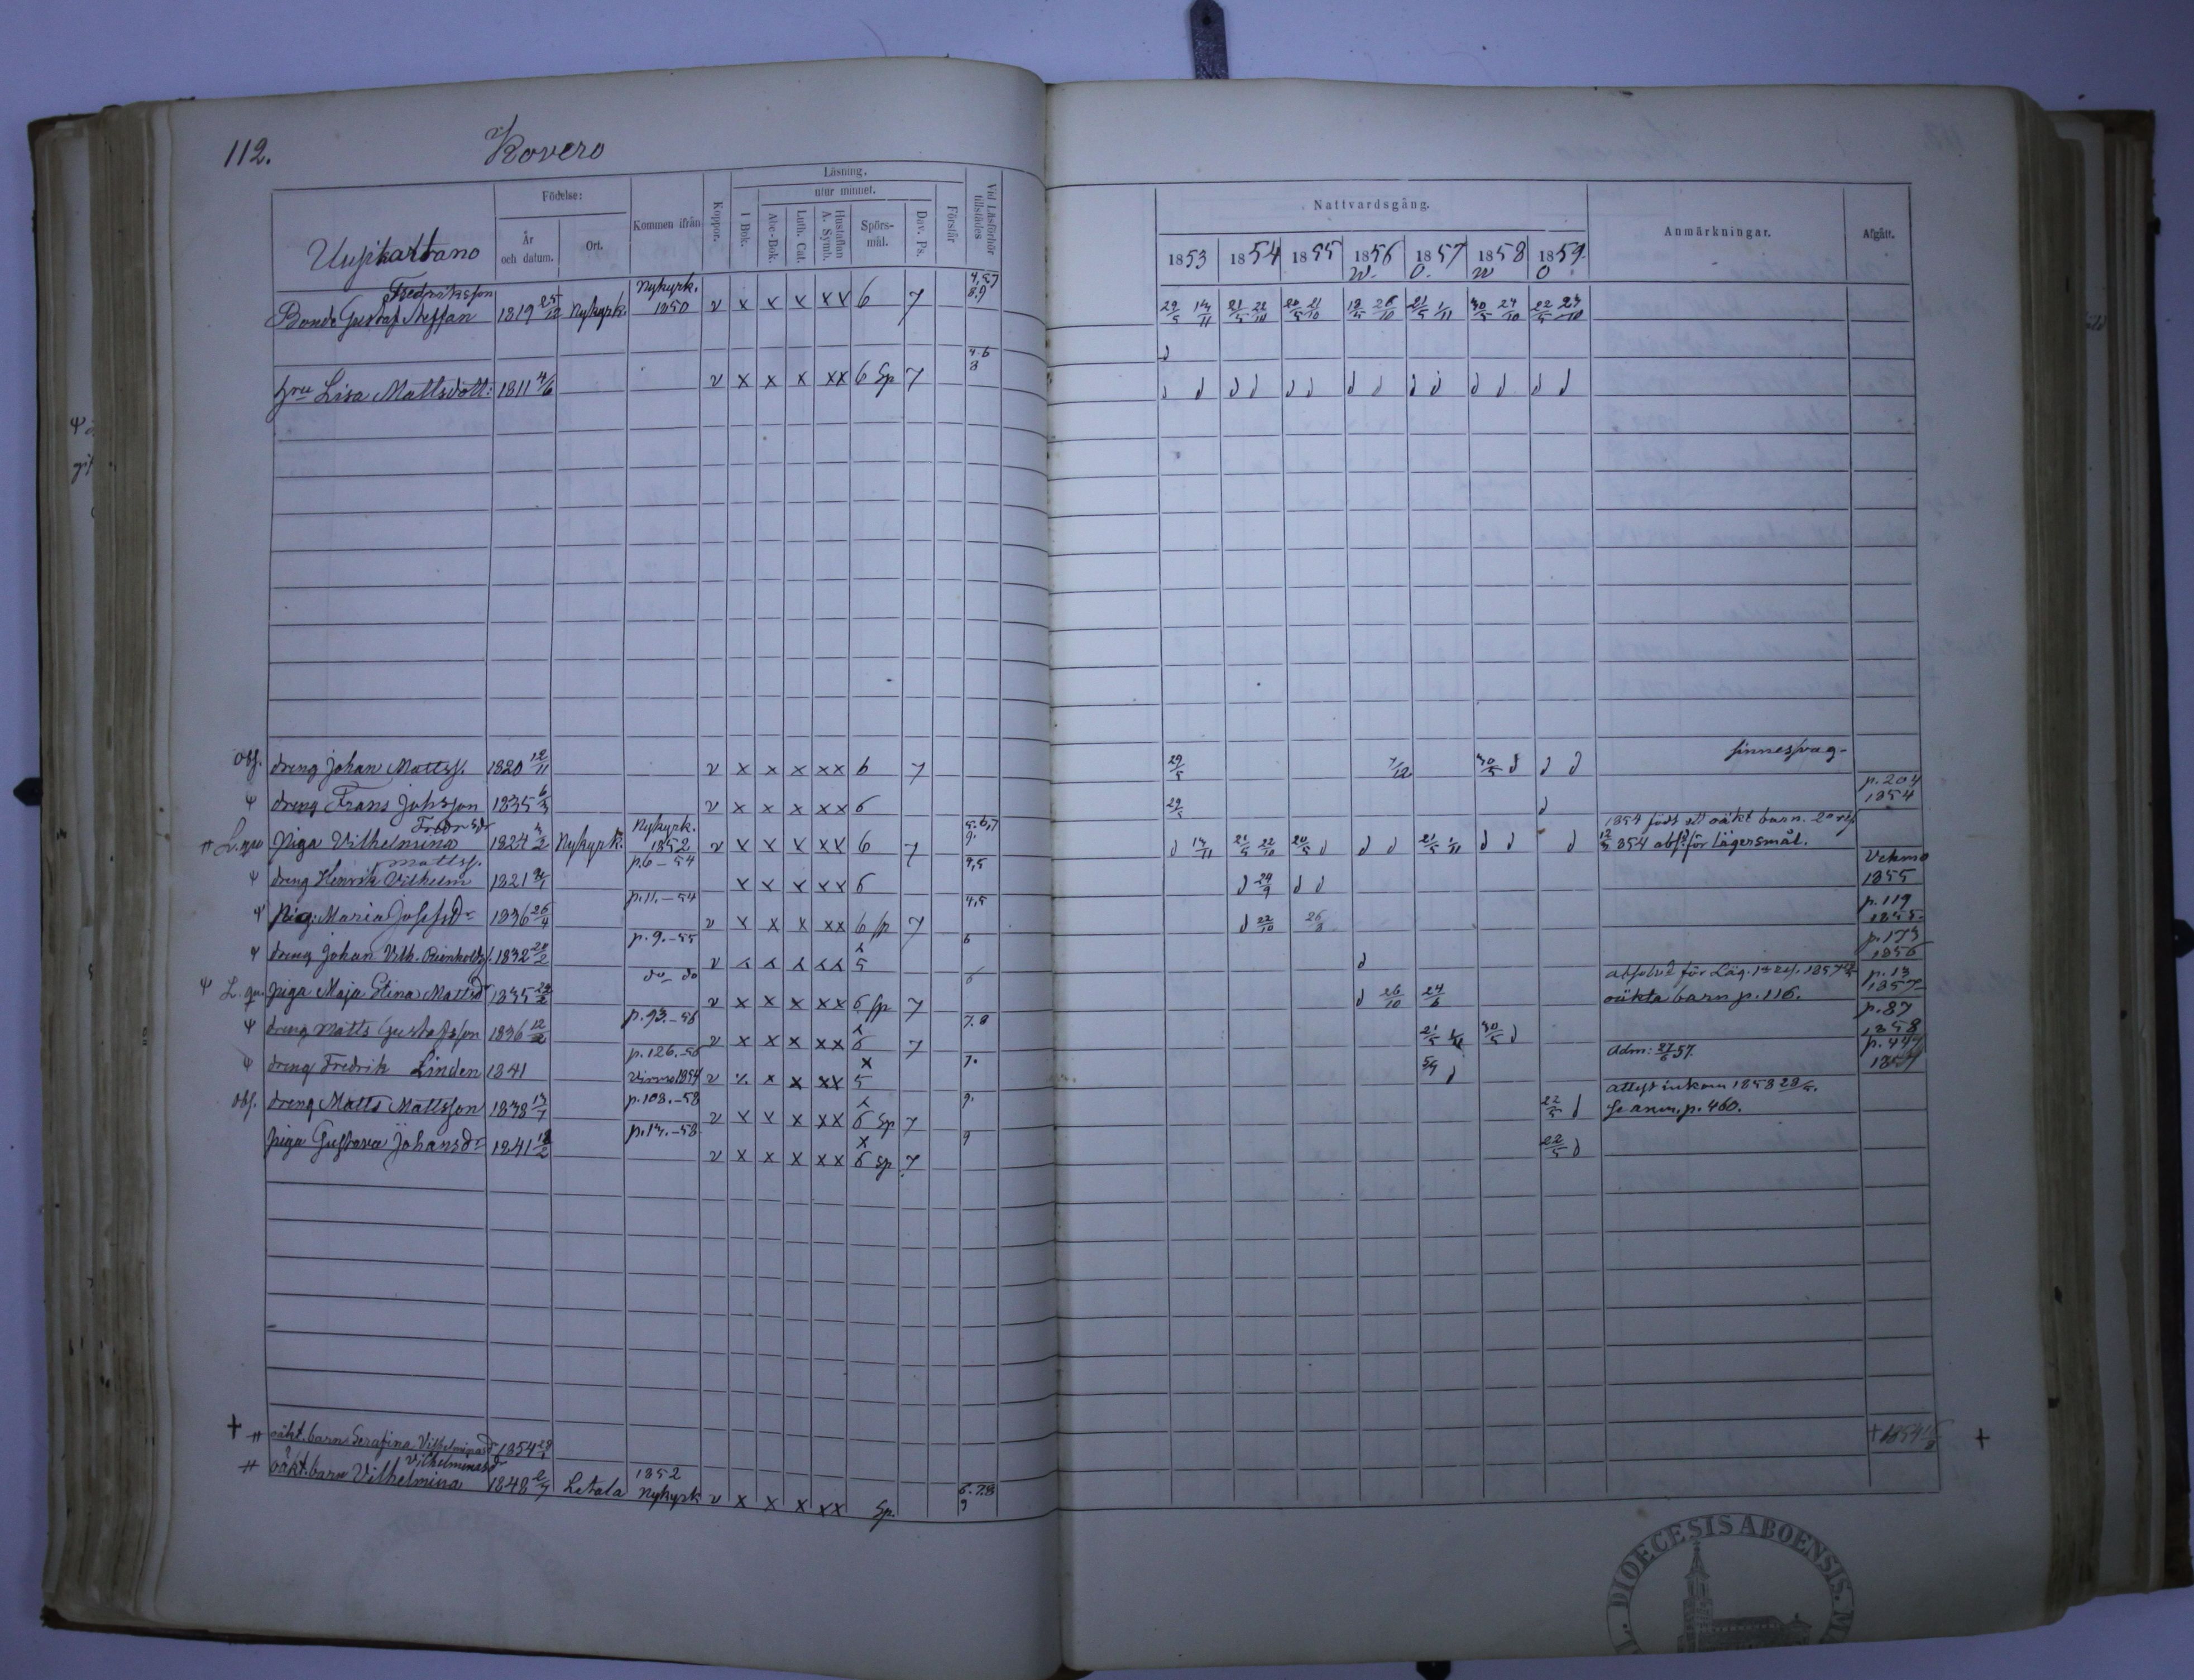 112. Kovero
Uusikartano
Födelse:
År och datum.
Ort.
Kommen ifrån
Koppor.
Läsning.
I Bok.
utur minnet.
Abc-Bok.
Luth. Cat.
Hustaflan A. Symb.
Spörs-mål.
Dav. Ps.
Förstår
Vid Läsförhör tillstädes
Nattvardsgång.
1853 1854 1855 1856 1857 1858 1859.
W. O. W O
Anmärkningar.
Afgått.
Bonde Gustaf Steffan Fredriksson 1819 25/12 Nykyrk. Nykyrk. 1850 v x x x xx 6 7 4,5,7 8.9 29/5 13/11 21/5 22/10 20/5 21/10 12/5 26/10 21/5 1/11 30/5 24/10 22/5 23/10
hru Lisa Mattsdott: 1811 4/6 v x x x xx 6 Sp 7 4.6 8
Obs. dreng Johan Mattss. 1820 12/11 v x x x xx 6 7 29/5 7/12 30/5 sinnessvag-
dreng Frans Johsson 1835 6/3 v x x x xx 6 29/5 p. 204 1854
L. Piga Vilhelmina Fredrsdr 1824 Nykyrk. Nykyrk. 1852 v x x x xx 6 7 5.6,7 9. 13/11 21/5 22/10 20/5 21/5 1/11 1854 födt ett oäkt barn. 12/3 854 abs. för Lägersmål.
dreng Henrik Vilhelm Mattss. 1821 p. 6-54 x x x xx 6 4,5 29/9 Vehmo 1855
Pig: Maria Josefsdr 1836 26/4 p. 11.-54 v x x x xx 6 sp 7 4,5 22/10 p. 119
dreng Johan Vilh. Reinholds. 1832 p. 9.-55 v x x x xx 5 6 p. 173 1856
L. piga Maja Stina Mattsdr 1835 do do v x x x xx 6 sp 7 6 26/10 24/6 absolv. för Läg. oäkta barn p. 116. p. 13 1857
dreng Matts Gustafsson 1836 12/2 p. 93.-56 v x x x xx 6 7 7.8 21/5 30/5 p. 87 1858
dreng Fredrik Linden 1841 p. 126.-56 Virmo 1854 v x x xx 5 7. Adm: 21/6 57. p. 447
obs. dreng Matts Mattsson 1838 13/7 p. 108.-58 v x x x xx 6 Sp 7 9. 22/5 attest inkom 1858 28/5. Se anm. p. 460.
piga Gustava Johansdr 1841 p. 14.-58 v x x x xx 6 Sp 7 9 22/5
+ oäkt. barn Serafina Vilhelminasdr 1854 + 1854 +
oäkt. barn Vilhelmina Vilhelminasdr 1848 2/7 Letala 1852 Nykyrk v x x x xx Sp. 6.7.8 9
DIOECESIS ABOENSIS.